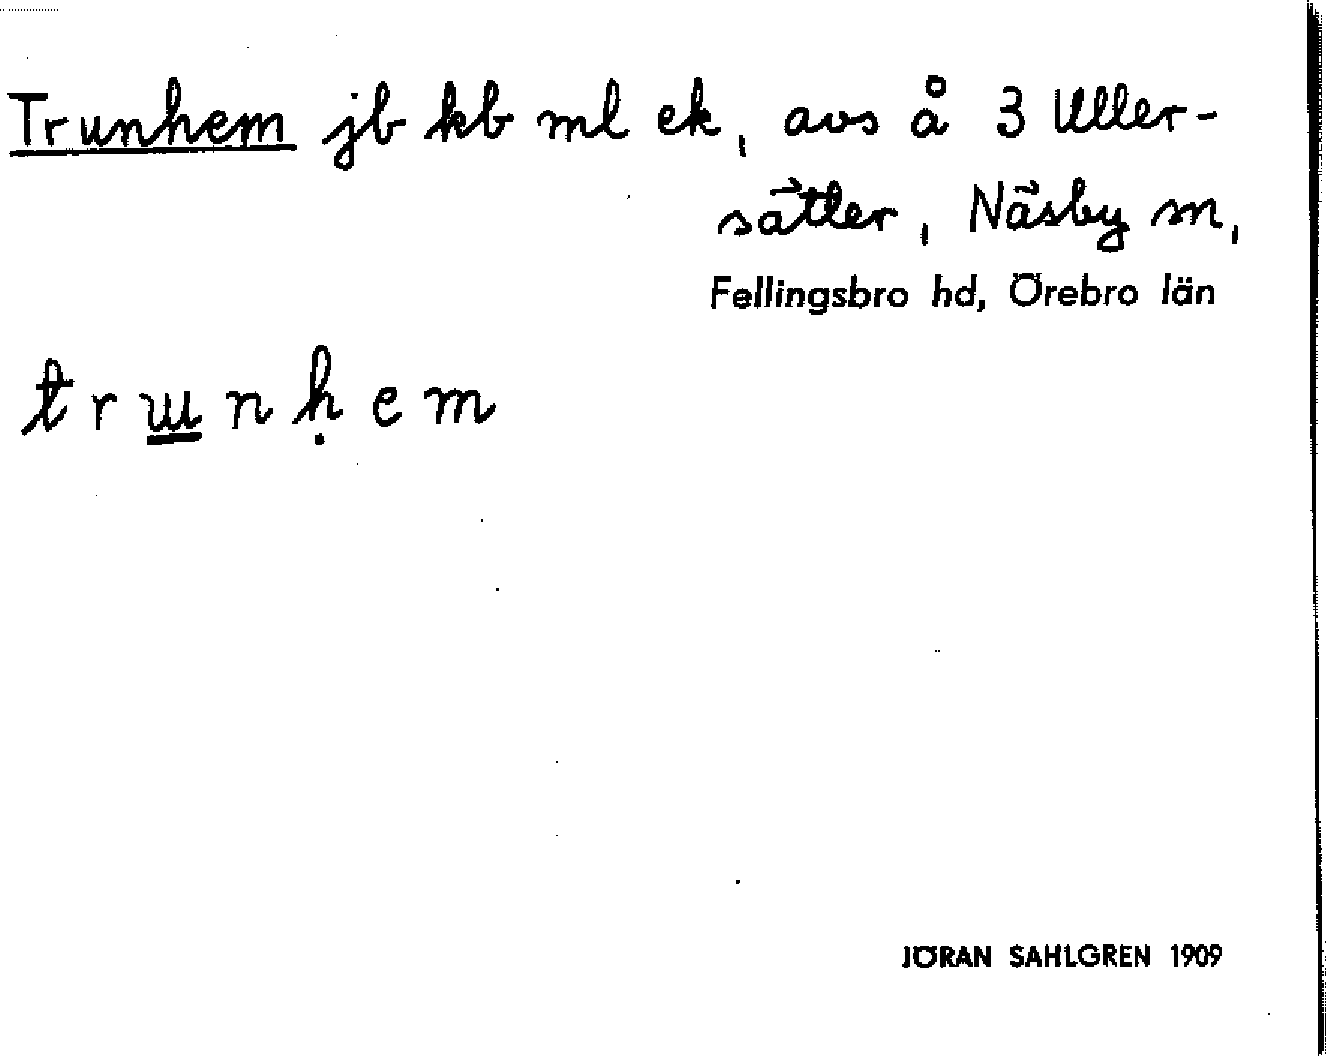 Trunhem jb kb ml ek, avs å 3 Uller-
sätter, Näsby sn,
Fellingsbro hd, Örebro län
trɯnḥem
JÖRAN SAHLGREN 1909